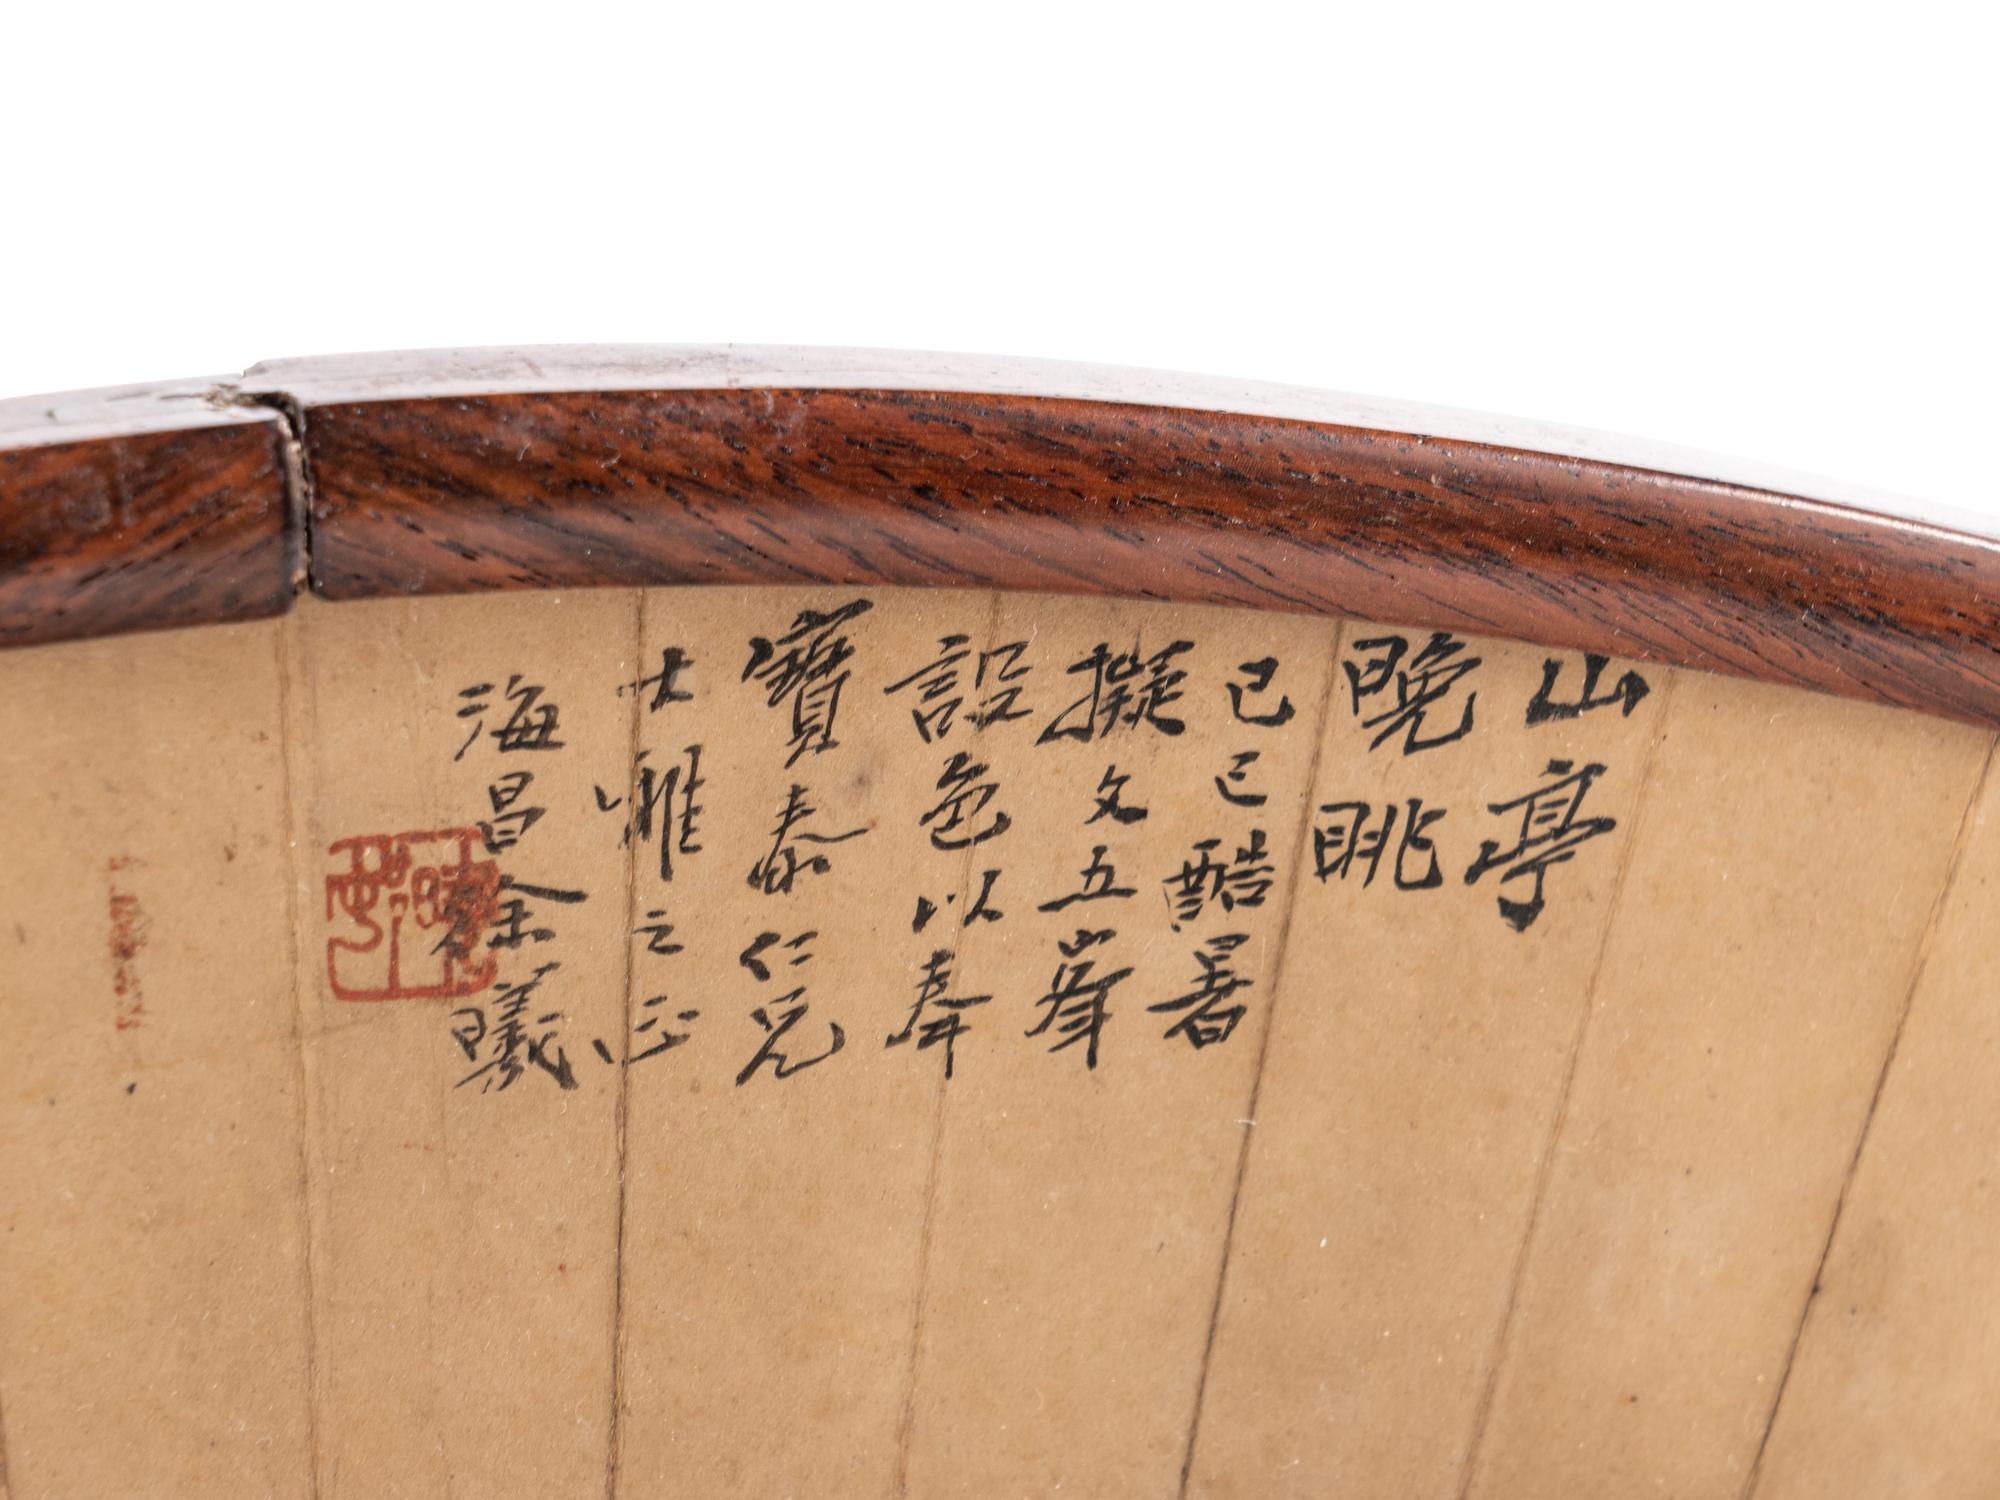 山亭
晚眺
己巳酷暑
擬文五峯
設色以奉
寶泰仁兄
大雅之正
海昌徐曦